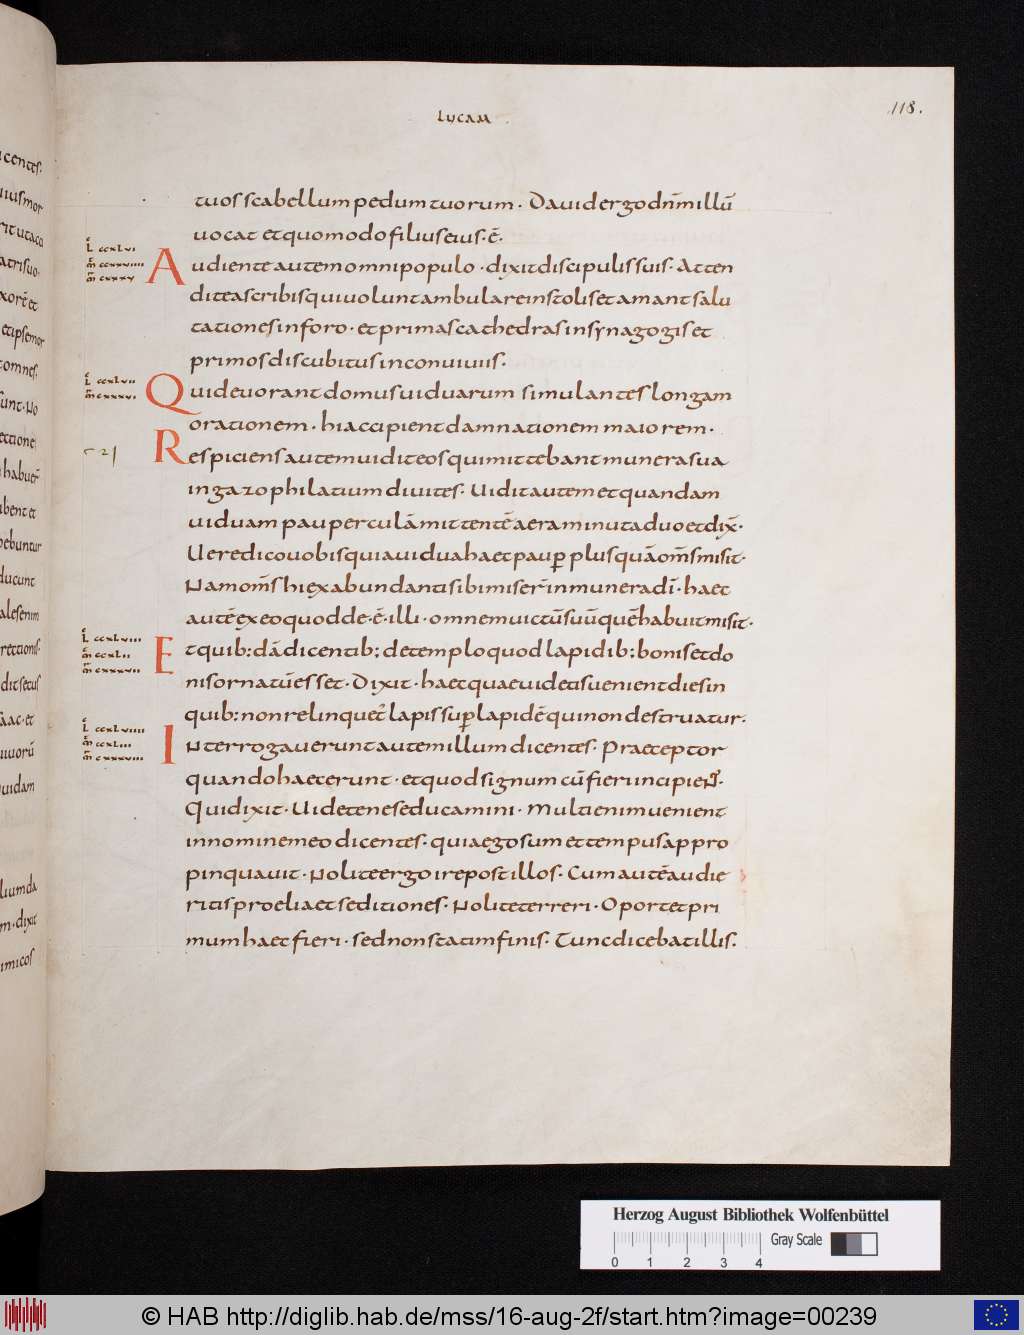 LUCAM
118.
tuos scabellum pedum tuorum. Dauid ergo dn̄m illū
uocat et quomodo filius eius. ē.
L ccxLvi
m̄ ccxxviiii
m̄ cxxxv
Audiente autem omni populo. dixit discipulis suis. Atten
dite a scribis qui uolunt ambulare in stolis et amant salu
tationes in foro. et primas cathedras in synagogis et
primos discubitus in conuiuiis.
L ccxLvii
m̄ cxxxvi
Qui deuorant domus uiduarum simulantes longam
orationem. hi accipient damnationem maiorem.
c 21
Respiciens autem uidit eos qui mittebant munera sua
in gazophilatium diuites. Uidit autem et quandam
uiduam pauperculā mittentē aera minuta duo et dix̄.
Uere dico uobis quia uidua haec paup̱ plus quā om̄s misit.
Nam om̄s hi ex abundanti sibi miser̄ in munera dī. haec
autē ex eo quod de.ē. illi. omnem uictū suū quē habuit misit.
L ccxLviii
m̄ ccxLii
m̄ cxxxvii
Et quib: dā dicentib: de templo quod lapidib: bonis et do
nis ornatū esset. Dixit. haec quae uidetis uenient dies in
quib: non relinquet̄ lapis sup̱ lapidē qui non destruatur.
L ccxLviiii
m̄ ccxLiii
m̄ cxxxviii
Interrogauerunt autem illum dicentes. Praeceptor
quando haec erunt. et quod signum cū fieri incipient.
Qui dixit. Uidete ne seducamini. Multi enim uenient
in nomine meo dicentes. quia ego sum et tempus appro
pinquauit. Nolite ergo ire post illos. Cum autē audie
ritis proelia et seditiones. Nolite terreri. Oportet pri
mum haec fieri. sed non statim finis. Tunc dicebat illis.
icentes.
uius mor
rit ut acci
atri suo.
xorē et
et ipse mor
omnes.
unt. No
ectione
habuer̄
ubent et
ebuntur
ducunt
ales enim
rrectionis.
dit secus
aac. et
uiuorū
uidam
lium da
m. dixit
imicos
Herzog August Bibliothek Wolfenbüttel
Gray Scale
0 1 2 3 4
© HAB http://diglib.hab.de/mss/16-aug-2f/start.htm?image=00239